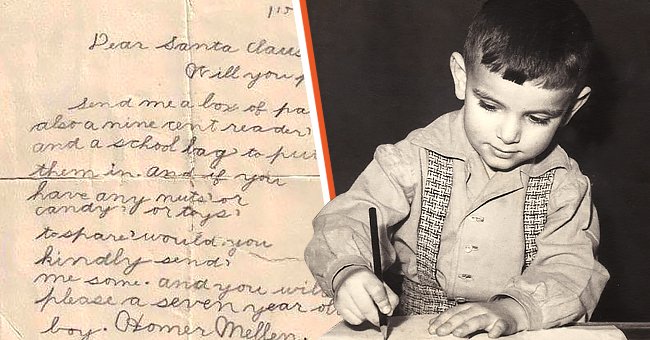 Dear Santa Claus
Will you
send me a box of pa
also a nine cent reader
and a school bag to put
them in. and if you
have any nuts or
candy or toys
to spare would you
kindly send
me some. and you will
please a seven year ol
boy. Homer Mellen.